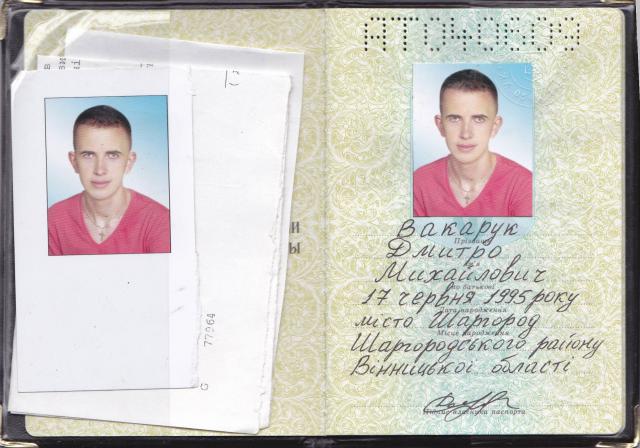 77964
G
и
ы
Вакарук
Прізвище
Дмитро
Ім'я
Михайлович
По батькові
17 червня 1995 року
Дата народження
місто Шаргород
Місце народження
Шаргородського району
Вінницької області
Підпис власника паспорта